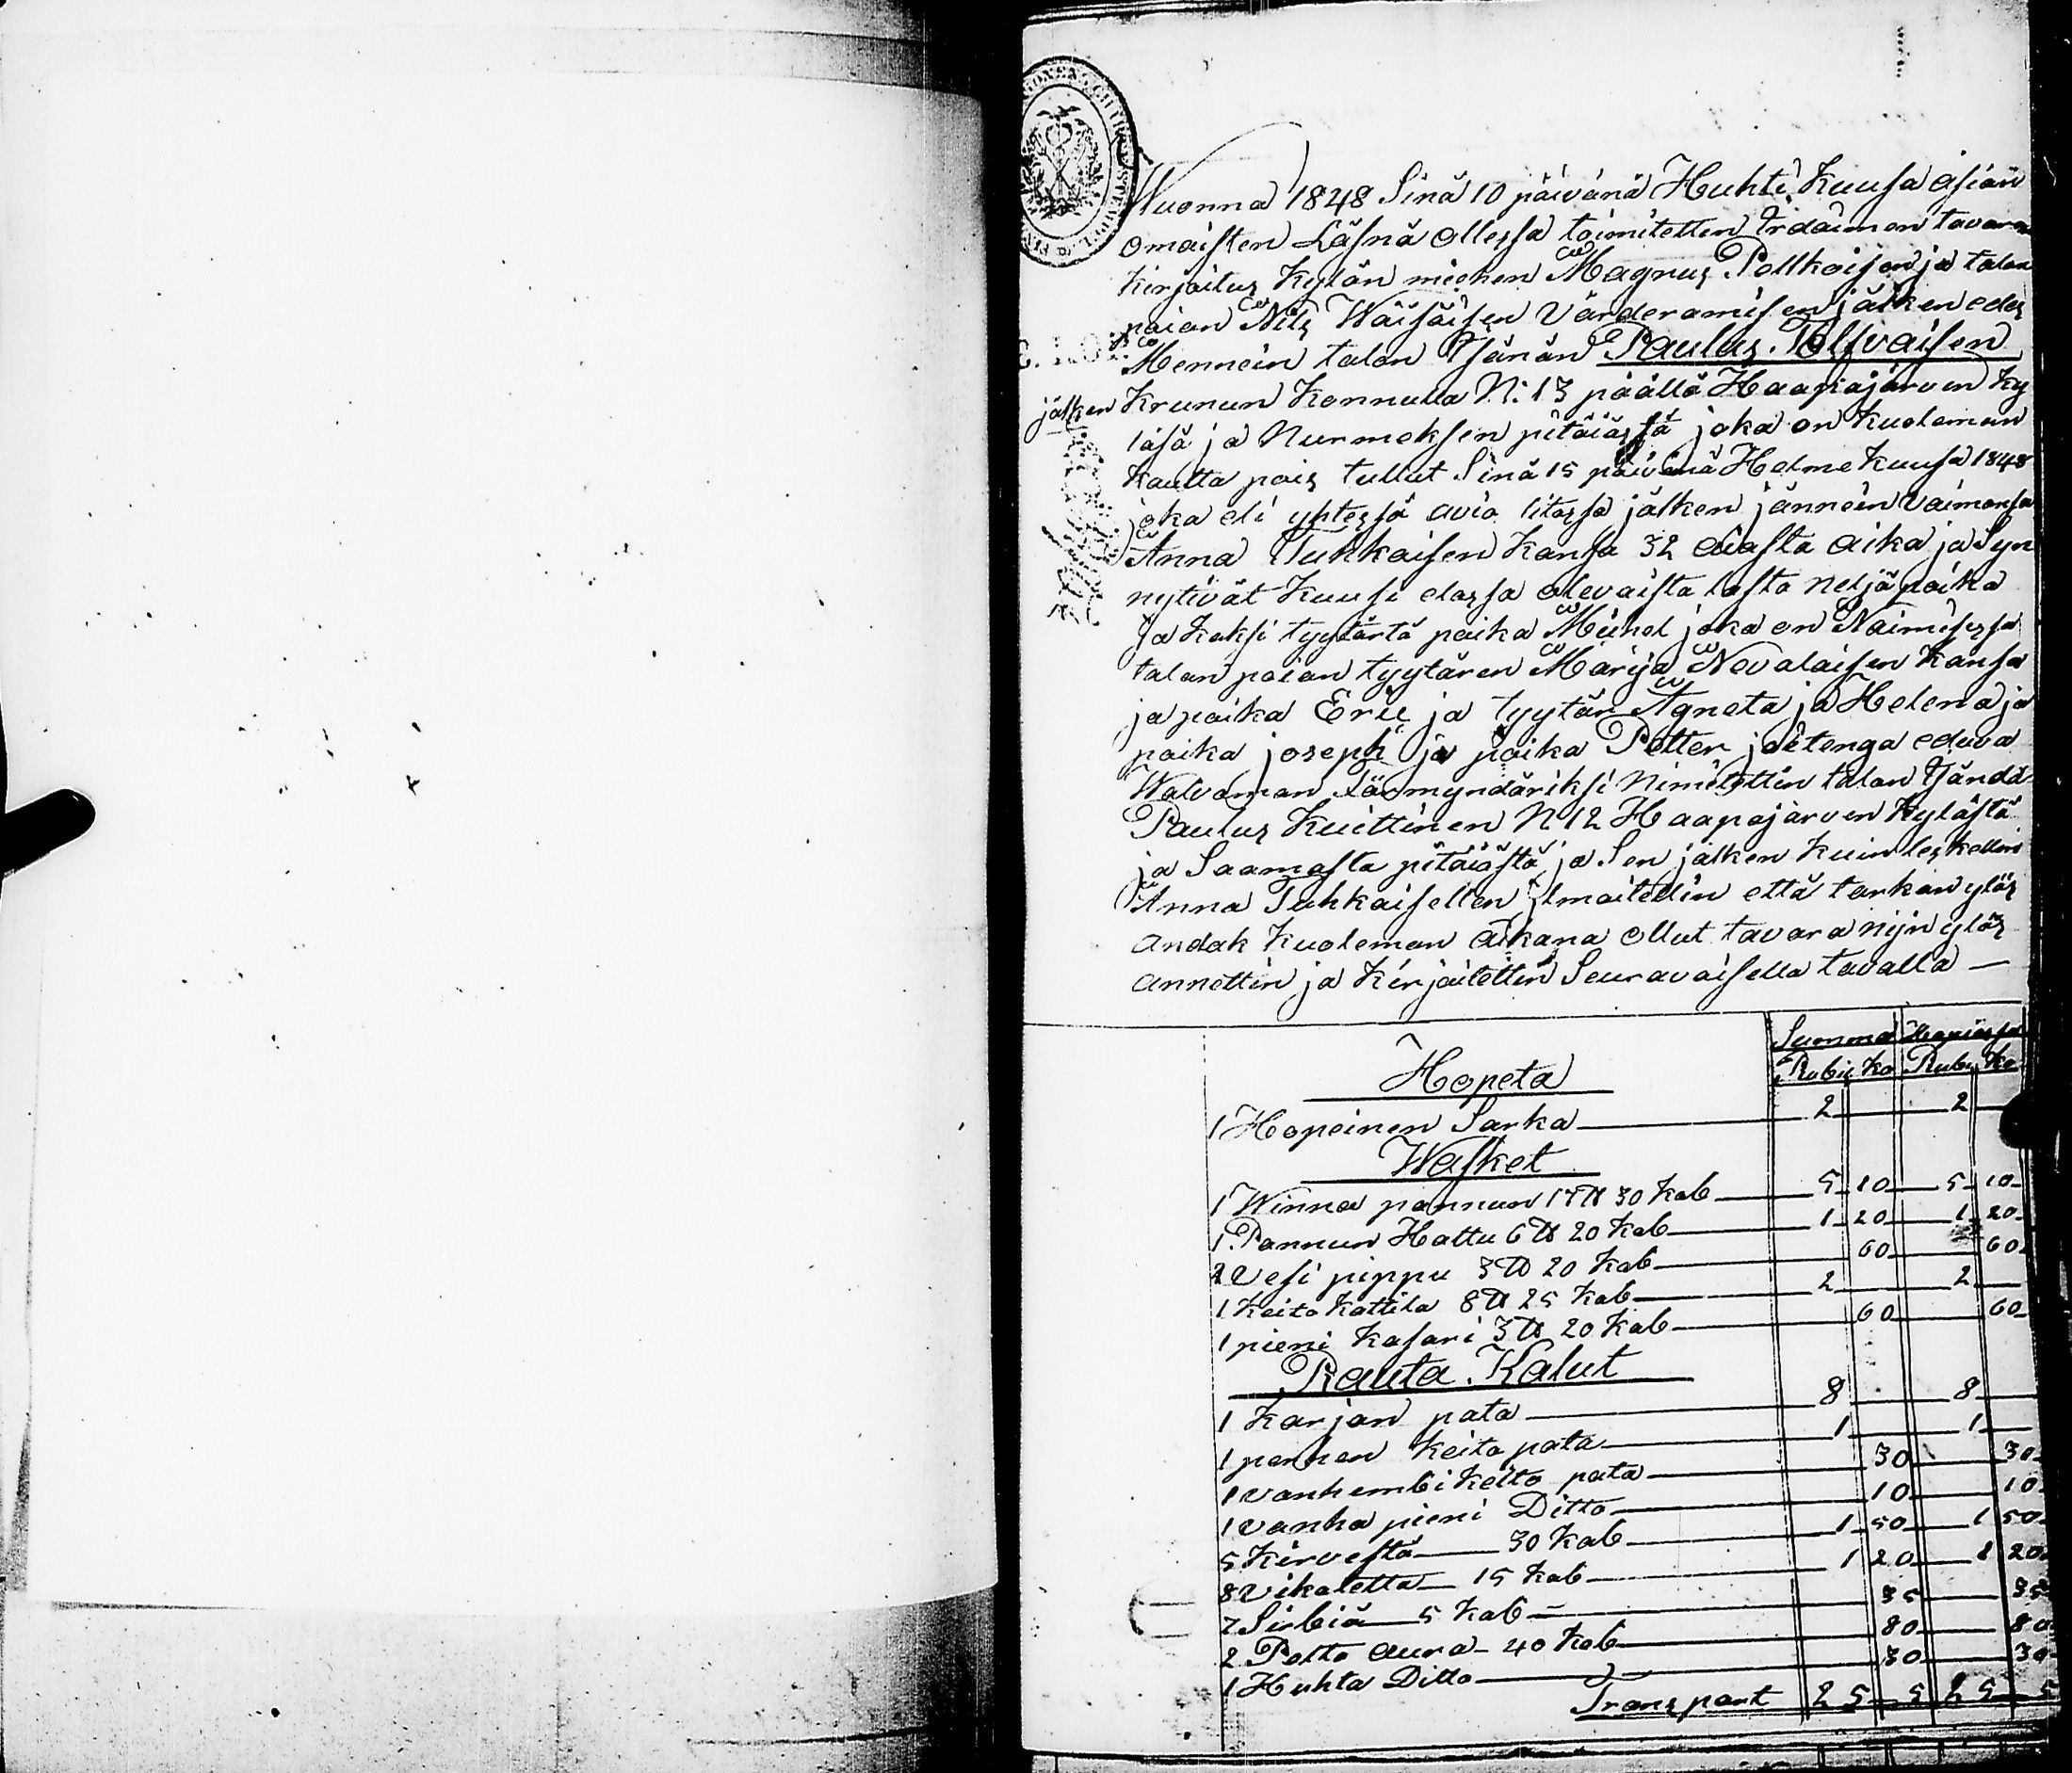 Wuonna 1848 Sinä 10 päivänä Huhti Kuusa asian
omaisten Läsnä ollessa toimitettin Irdaimen tavaran
kirjoitus Kylän miehen Magnus Polkkoisen ja talon
poian Nils Wäisäisen Värderamisen jälken edes
Mennein talon Isänän Paulus Tolfvaisen
jälken Krunun Konnulla N: 13 päällä Haapajärven Ky
läsä ja Nurmeksen pitäiässä joka on Kuoleman
kautta pois tullut Sinä 15 päivänä Helme Kuusa 1848
joka eli yhtessä avio litossa jälken jännein vaimonsa
Anna Tuhkaisen Kansa 32 aiasta aika ja Syn
nytivät Kuusi elossa olevaista lasta neljä poika
ja Kaksi tyytärtä poika Michel joka on Naimisessa
talon poian tyytären Marija Nevalaisen Kansa
ja poika Eric ja tyytär Agneta ja Helena ja
poika joseph ja poika Petter joitenga eduva
Walvoman Färmyndäriksi Nimitettin talon Isändä
Paulus Kuittinen N 12 Haapajärven Kylästä
ja Saamasta pitäiästä ja Sen jälken Kuin leskellen
Anna Tuhkaisellen ilmoitettin että tarkan ylös
andak Kuoleman aikana ollut tavara nijn ylös
annettin ja Kirjoitettin Seuravaisella tavalla —
Summa Hopiassa
Hopeta Rubu Ko Rubu Ko
1 Hopeinen Sarka 2 2
Wasket
1 Winna pannun 17 ℔ 30 Kob 5 10 5 10
1 Pannun Hattu 6 ℔ 20 Kob 1 20 1 20
2 Vesi pippu 3 ℔ 20 Kob 60 60
1 Keito Kattila 8 ℔ 25 Kob 2 2
1 pieni Kasari 3 ℔ 20 Kob 60 60
Rauta Kalut
1 Karjan pata 8 8
1 perhen Keito pata 1 1
1 vanhembi Keito pata 30 30
1 vanha pieni Ditto 10 10
5 Kirvestä 30 Kob 1 50 1 50
8 Vikatetta 15 Kob 1 20 1 20
7 Sirbiä 5 Kob 35 35
2 Pelto aura 40 Kob 80 80
1 Huhta Ditto 30 30
Transport 25 5 25 5